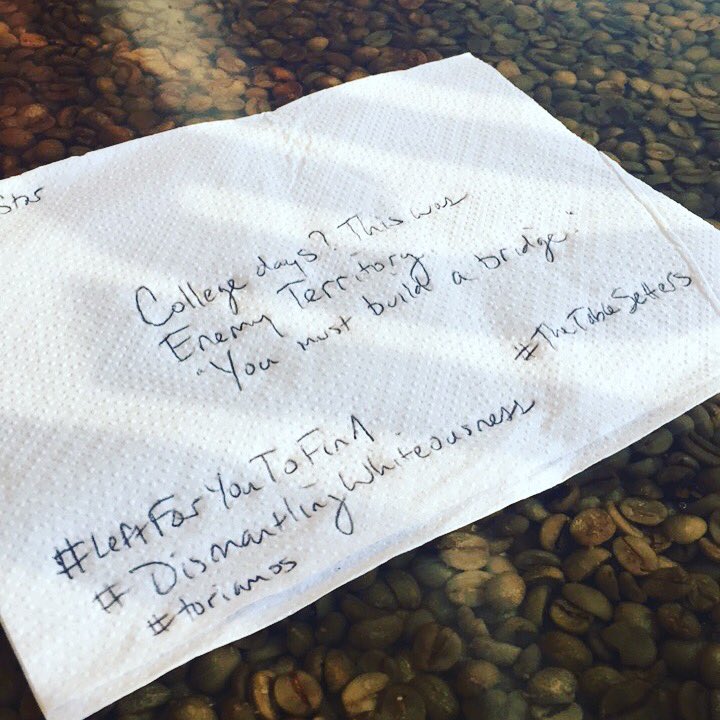 Star
College days? This was
Enemy Territory.
"You must build a bridge."
#TheTableSetters
#LeftForYouToFind
#DismantlingWhiteousness
#toriamos